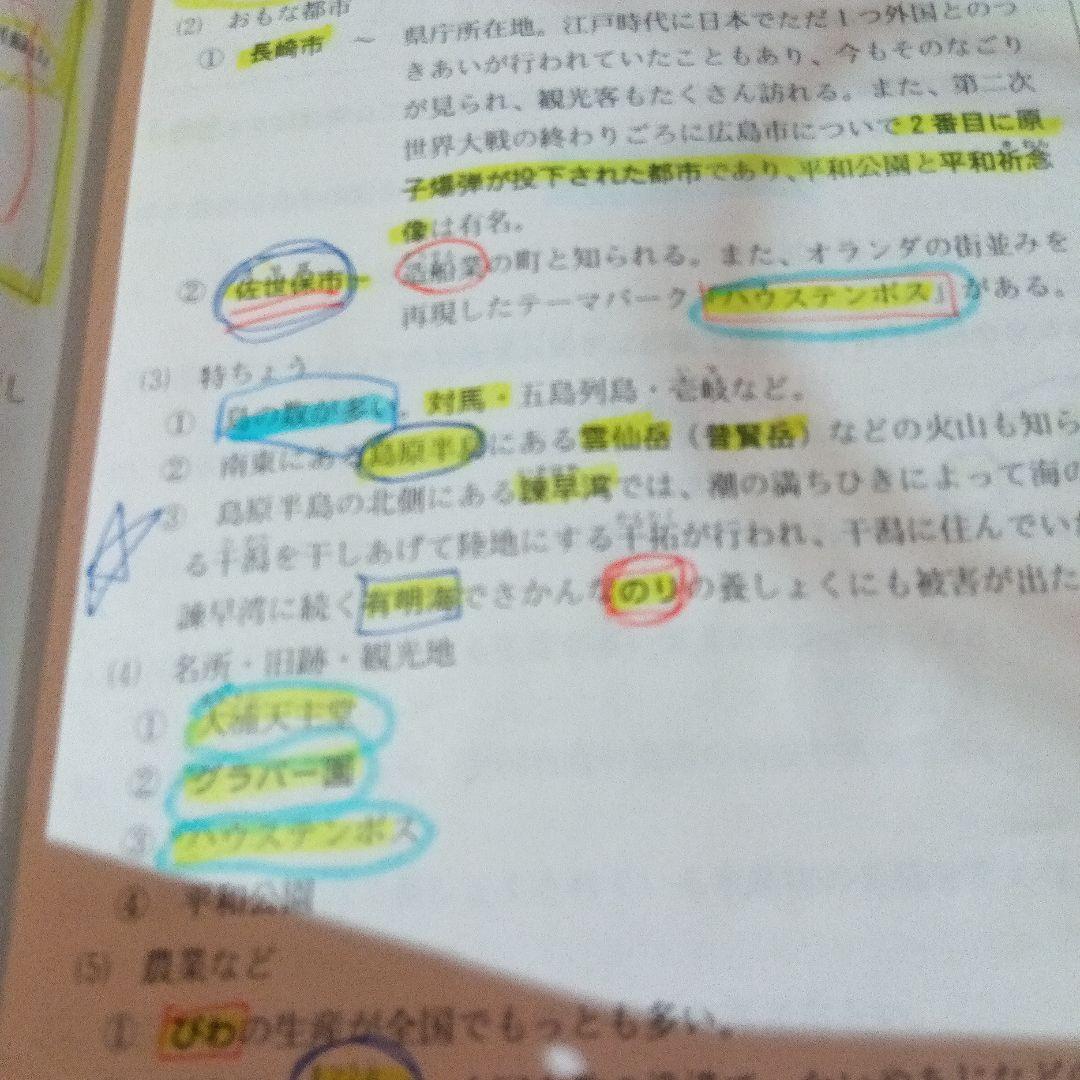 (2) おもな都市
① 長崎市 ～ 県庁所在地。江戸時代に日本でただ1つ外国とのつ
きあいが行われていたこともあり、今もそのなごり
が見られ、観光客もたくさん訪れる。また、第二次
世界大戦の終わりごろに広島市について2番目に原
子爆弾が投下された都市であり、平和公園と平和祈念
像は有名。
② 佐世保市～ 造船業の町と知られる。また、オランダの街並みを
再現したテーマパーク『ハウステンボス』がある。
(3) 特ちょう
① 島の数が多い。対馬・五島列島・壱岐など。
② 南東にある島原半島にある雲仙岳（普賢岳）などの火山も知ら
③ 島原半島の北側にある諫早湾では、潮の満ちひきによって海の
る干潟を干しあげて陸地にする干拓が行われ、干潟に住んでい
諫早湾に続く有明海でさかんなのりの養しょくにも被害が出た
(4) 名所・旧跡・観光地
① 大浦天主堂
② グラバー園
③ ハウステンボス
④ 平和公園
(5) 農業など
① びわの生産が全国でもっとも多い。